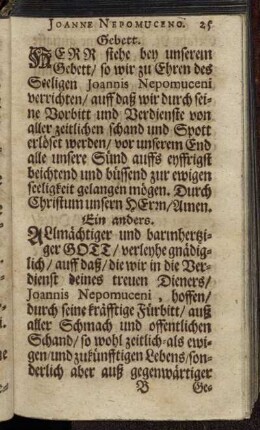 JOANNE NEPOMUCENO. 25
Gebett.
HERR siehe bey unserem
Gebett/ so wir zu Ehren des
Seeligen Joannis Nepomuceni
verrichten/ auff daß wir durch sei-
ne Vorbitt und Verdienste von
aller zeitlichen schand und Spott
erlöset werden/ vor unserem End
alle unsere Sünd auffs eyffrigst
beichtend und büssend zur ewigen
seeligkeit gelangen mögen. Durch
Christum unsern HErrn/Amen.
Ein anders.
ALmächtiger und barmhertzi-
ger GOTT/ verleyhe gnädig-
lich/ auff daß/ die wir in die Ver-
dienst deines treuen Dieners/
Joannis Nepomuceni, hoffen/
durch seine kräfftige Fürbitt/ auß
aller Schmach und offentlichen
Schand/ so wohl zeitlich-als ewi-
gen/und zukünfftigen Lebens/son-
derlich aber auß gegenwärtiger
B Ge-